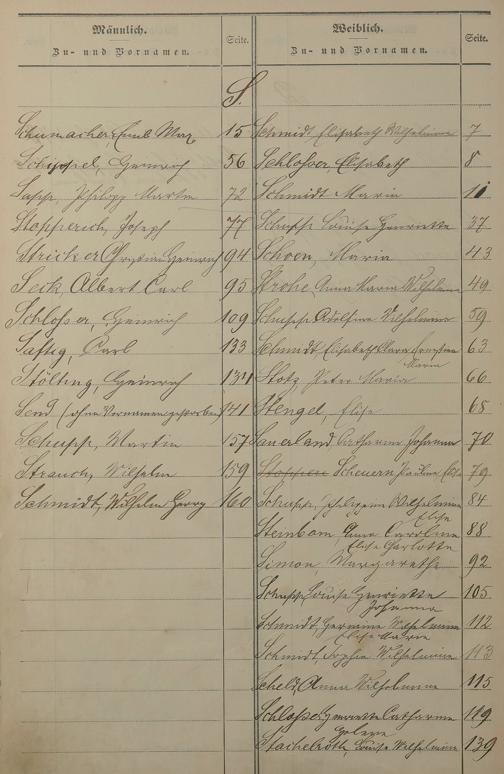 Männlich.
Zu- und Vornamen.
Seite.
Weiblich.
Zu- und Vornamen.
Seite.
S.
Schumacher, Emil Max 15
Schippel, Heinrich 56
Sapp, Philipp Martin 72
Stopperich, Joseph 77
Stricker Christian Heinrich 94
Seck, Albert Carl 95
Schlosser, Heinrich 109
Saftig, Carl 133
Stölting, Heinrich 134
Send (ohne Vornamen gestorben) 141
Schupp, Martin 157
Strauch, Wilhelm 159
Schmidt, Wilhelm Georg 160
Schmidt, Elisabeth Wilhelmine 7
Schlosser, Elisabeth 8
Schmidt Maria 11
Schupp Louise Henriette 37
Schoon, Maria 43
Strohe, Anna Maria Wilhelmine 49
Schupp Adolfine Wilhelmine 59
Schmidt, Elisabeth Clara Christine 63
Maria
Stotz, Maria 66
Stengel, Elise 68
Sauerland, Catharina Johanna 70
Scheuern Pauline Elise 79
Schupp, Philippine Wilhelmine 84
Elise
Sternbam, Anna Caroline 88
Elise Charlotte
Simon, Margarethe 92
Schupp Louise Henriette 105
Johanna
Schmidt, Hermine Wilhelmine 112
Elise Maria
Schmidt, Sophie Wilhelmine 113
Scheld, Anna Wilhelmine 115
Schlosser, Henriette Catharine 119
Helene
Stachelroth, Louise Wilhelmine 139